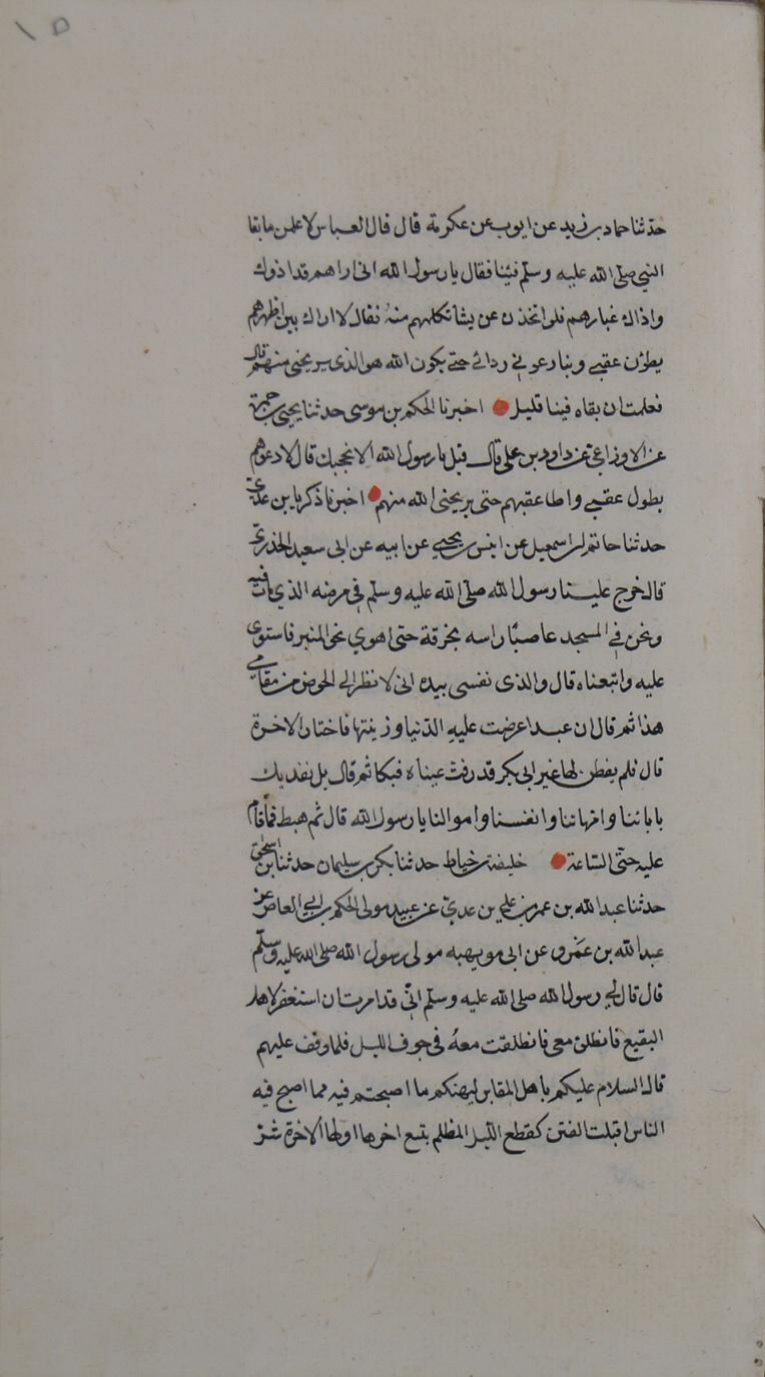 ١٥
حدثنا حماد بن زيد عن ايوب عن عكرمة قال قال العباس لاعلمن ما بقا
النبي صلى الله عليه وسلم فينا فقال يا رسول الله انى اراهم قد اذوك
واذاك غبارهم فلو اتخذت عريشا تكلمهم منه فقال لا ازال بين اظهرهم
يطؤن عقبي وينازعوني ردائي حتى يكون الله هو الذى يريحنى منهم قال
فعلمت ان بقاه فينا قليل اخبرنا الحكم بن موسى حدثنا يحيى بن حمزة
عن الاوزاعي عن داود بن على قال قيل يا رسول الله الا نحجبك قال لا دعوهم
يطؤن عقبي واطا عقبهم حتى يريحنى الله منهم اخبرنا ذكريا بن عدي
حدثنا حاتم بن اسمعيل عن انيس بن يحيى عن ابيه عن ابى سعيد الخدرى
قال خرج علينا رسول الله صلى الله عليه وسلم في مرضه الذي مات فيه
ونحن في المسجد عاصبا راسه بخرقة حتى اهوي نحو المنبر فاستوى
عليه واتبعناه قال والذى نفسى بيده انى لانظر الى الحوض من مقامي
هذا ثم قال ان عبدا عرضت عليه الدنيا وزينتها فاختار الاخرة
قال فلم يفطن لها غير ابى بكر قد رفت عيناه فبكا ثم قال بل نفديك
بابائنا وامهاتنا وانفسنا واموالنا يا رسول الله قال ثم هبط فما قام
عليه حتى الساعة خليفة بن خياط حدثنا بكر بن سليمان حدثنا بن اسحق
حدثنا عبد الله بن عمر بن علي بن عدي عن عبيد مولى الحكم بن ابي العاص عن
عبد الله بن عمرو عن ابى مويهبه مولى رسول الله صلى الله عليه وسلم
قال قال لي رسول الله صلى الله عليه وسلم انى قد امرت ان استغفر لاهل
البقيع فانطلق معى فانطلقت معه في جوف الليل فلما وقف عليهم
قال السلام عليكم ياهل المقابر ليهنكم ما اصبحتم فيه مما اصبح فيه
الناس اقبلت الفتن كقطع الليل المظلم يتبع اخرها اولها الاخرة شر